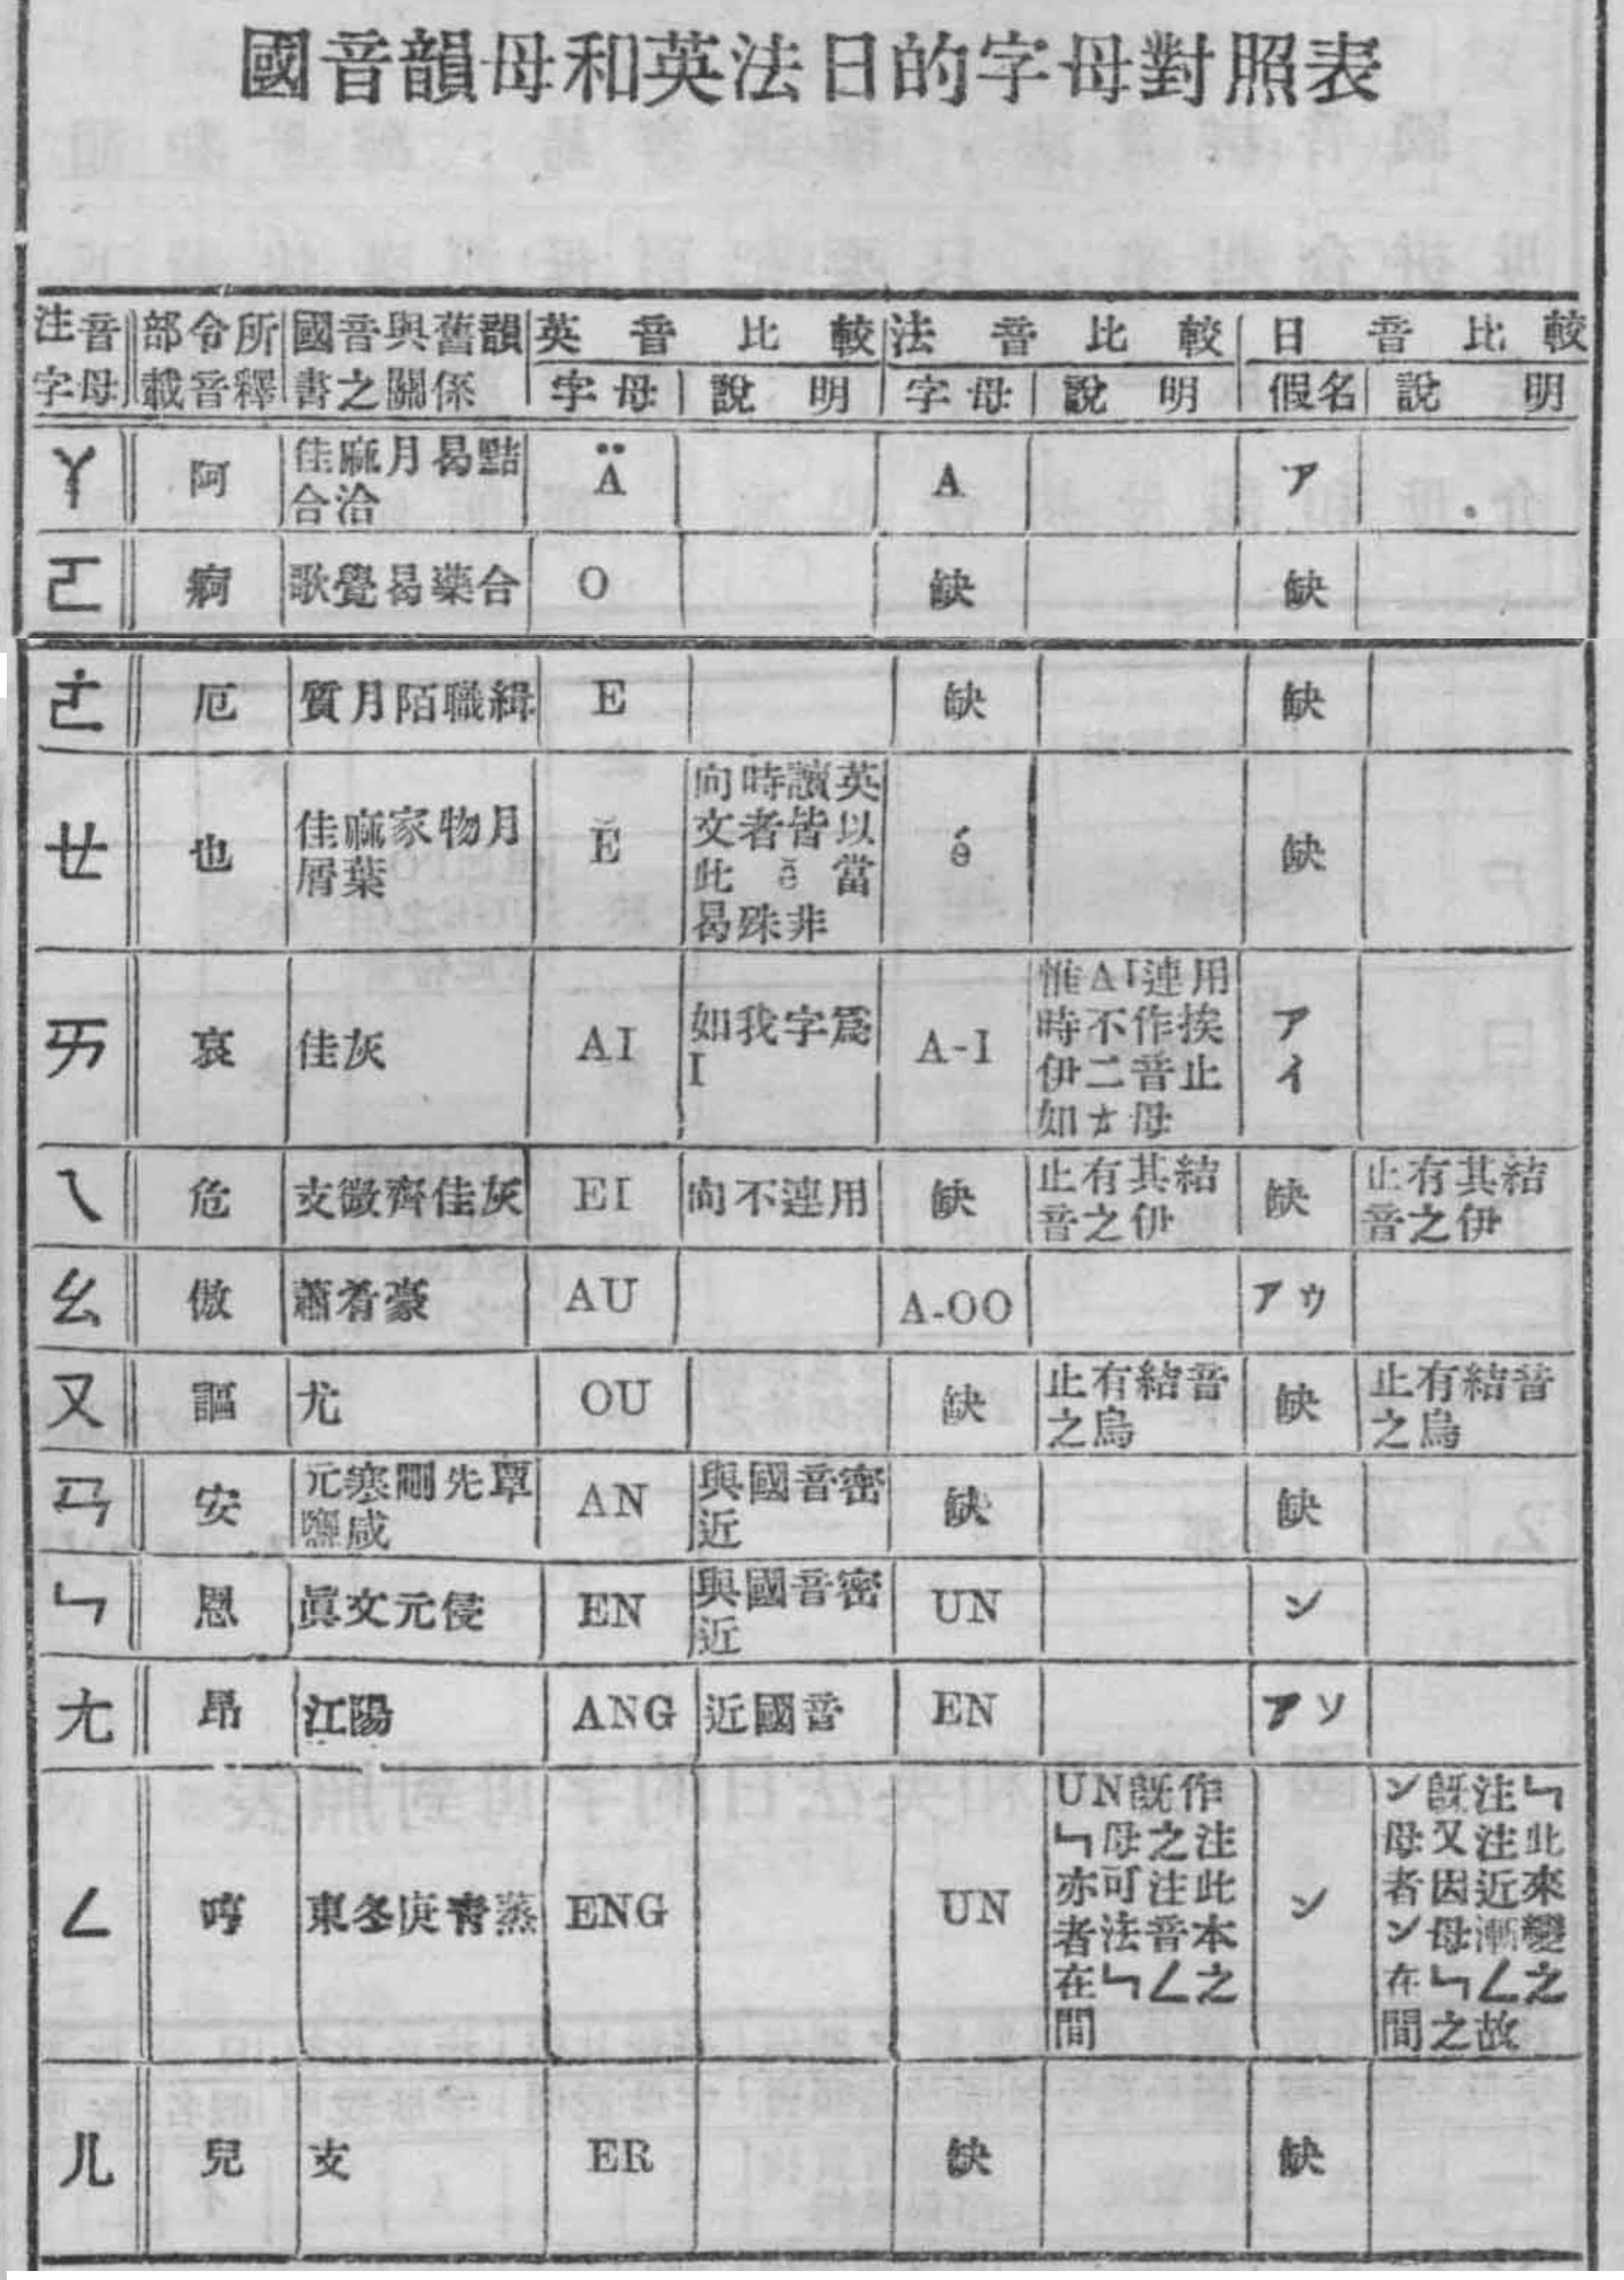 國音韻母和英法日的字母對照表
注音字母 部令所載音釋 國音與舊韻書之關係 英音比較 法音比較 日音比較
字母 說明 字母 說明 假名 說明
ㄚ 阿 佳麻月曷黠合洽 Ä A ア
ㄛ 痾 歌覺曷藥合 O 缺 缺
ㄜ 厄 質月陌職緝 E 缺 缺
ㄝ 也 佳麻家物月屑葉 Ĕ 向時讀英文者皆以此ĕ當曷殊非 é 缺
ㄞ 哀 佳灰 AI 如我字爲I A-I 惟AI連用時不作挨伊二音止如ㄝ母 アイ
ㄟ 危 支微齊佳灰 EI 向不連用 缺 止有其結音之伊 缺 止有其結音之伊
ㄠ 傲 蕭肴豪 AU A-OO アウ
ㄡ 謳 尤 OU 缺 止有結音之烏 缺 止有結音之烏
ㄢ 安 元寒刪先覃鹽咸 AN 與國音密近 缺 缺
ㄣ 恩 眞文元侵 EN 與國音密近 UN ン
ㄤ 昂 江陽 ANG 近國音 EN アソ
ㄥ 哼 東冬庚青蒸 ENG UN UN旣作ㄣ母之注亦可注此者法音本在ㄣㄥ之間 ン ン旣注ㄣ母又注此者因近來ン母漸變在ㄣㄥ之間之故
ㄦ 兒 支 ER 缺 缺